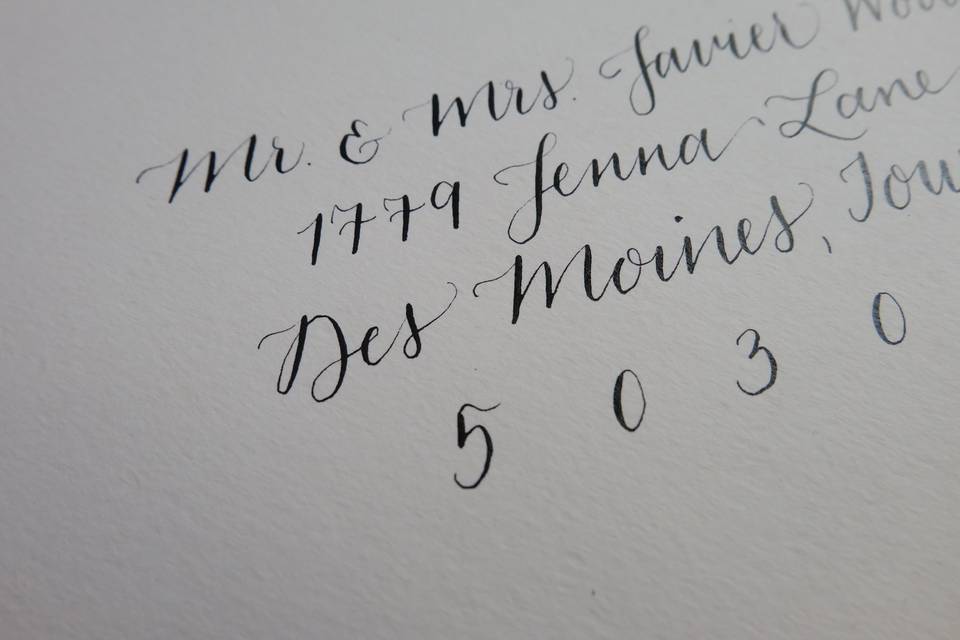 Mr. & Mrs. Javier
1779 Jenna Lane
Des Moines,
5 0 3 0